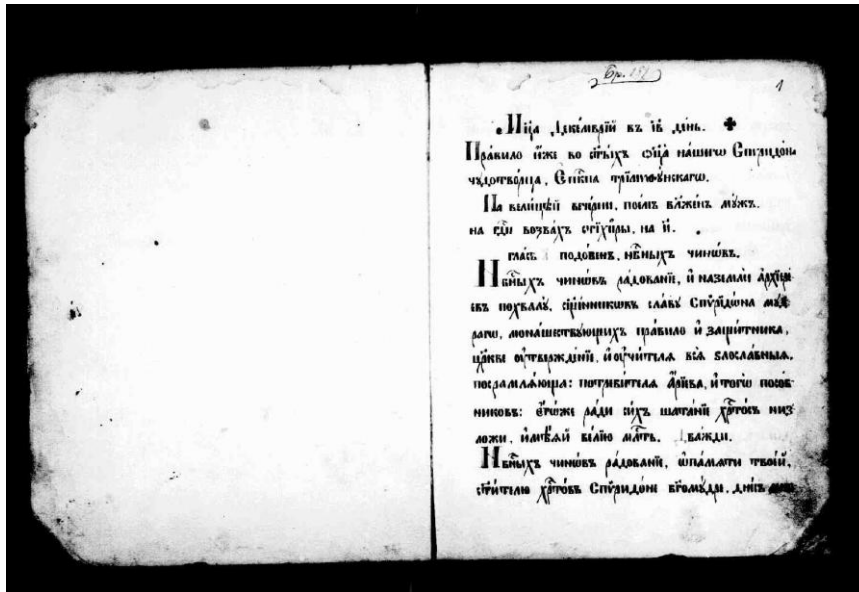 Бр. 151
1
Мц҃а Декемврїй въ в҃і де́нь.
Пра́вило и҆́же во ст҃ы́хъ ѻ҆ц҃а̀ на́шегѡ Спирїдо́на
чꙋдотво́рца, Е҆пⷭ҇кпа трїмїѳꙋ́нскагѡ.
На вели́цѣй вече́рни, пое́мъ бл҃же́нъ мꙋ́жъ.
на гдⷭ҇и воззва́хъ стїхи̑ры, на и҃.
гла́съ подо́бенъ, нбⷭ҇ныхъ чинѡ́въ.
Нбⷭ҇ныхъ чинѡ́въ ра́дованїе, и҆ на землѝ а҆рхїере́
євъ похвалꙋ̀, сщ҃е́нникѡвъ сла́вꙋ Спѷрїдѡ́на мꙋ́д
раго, мона́шествꙋющихъ пра́вило и҆ защи́тника,
цр҃кве ᲂу҆твержде́нїе, и҆ ᲂу҆чи́телѧ всѧ̀ ѕлосла́вныѧ,
посрамлѧ́юща: потреби́телѧ А҆́рїева, и҆ тогѡ̀ посо́б
никовъ: є҆гѡ́же ра́ди си́хъ шата́нїе хрⷭ҇то́съ низ
ложѝ, и҆мѣ́ѧй ве́лїю млⷭ҇ть. Два́жди.
Нбⷭ҇ныхъ чинѡ́въ ра́дованїе, ѡ҆ па́мѧти твое́й,
ст҃и́телю хрⷭ҇то́въ Спѷридо́не бг҃омꙋ́дре, дне́сь